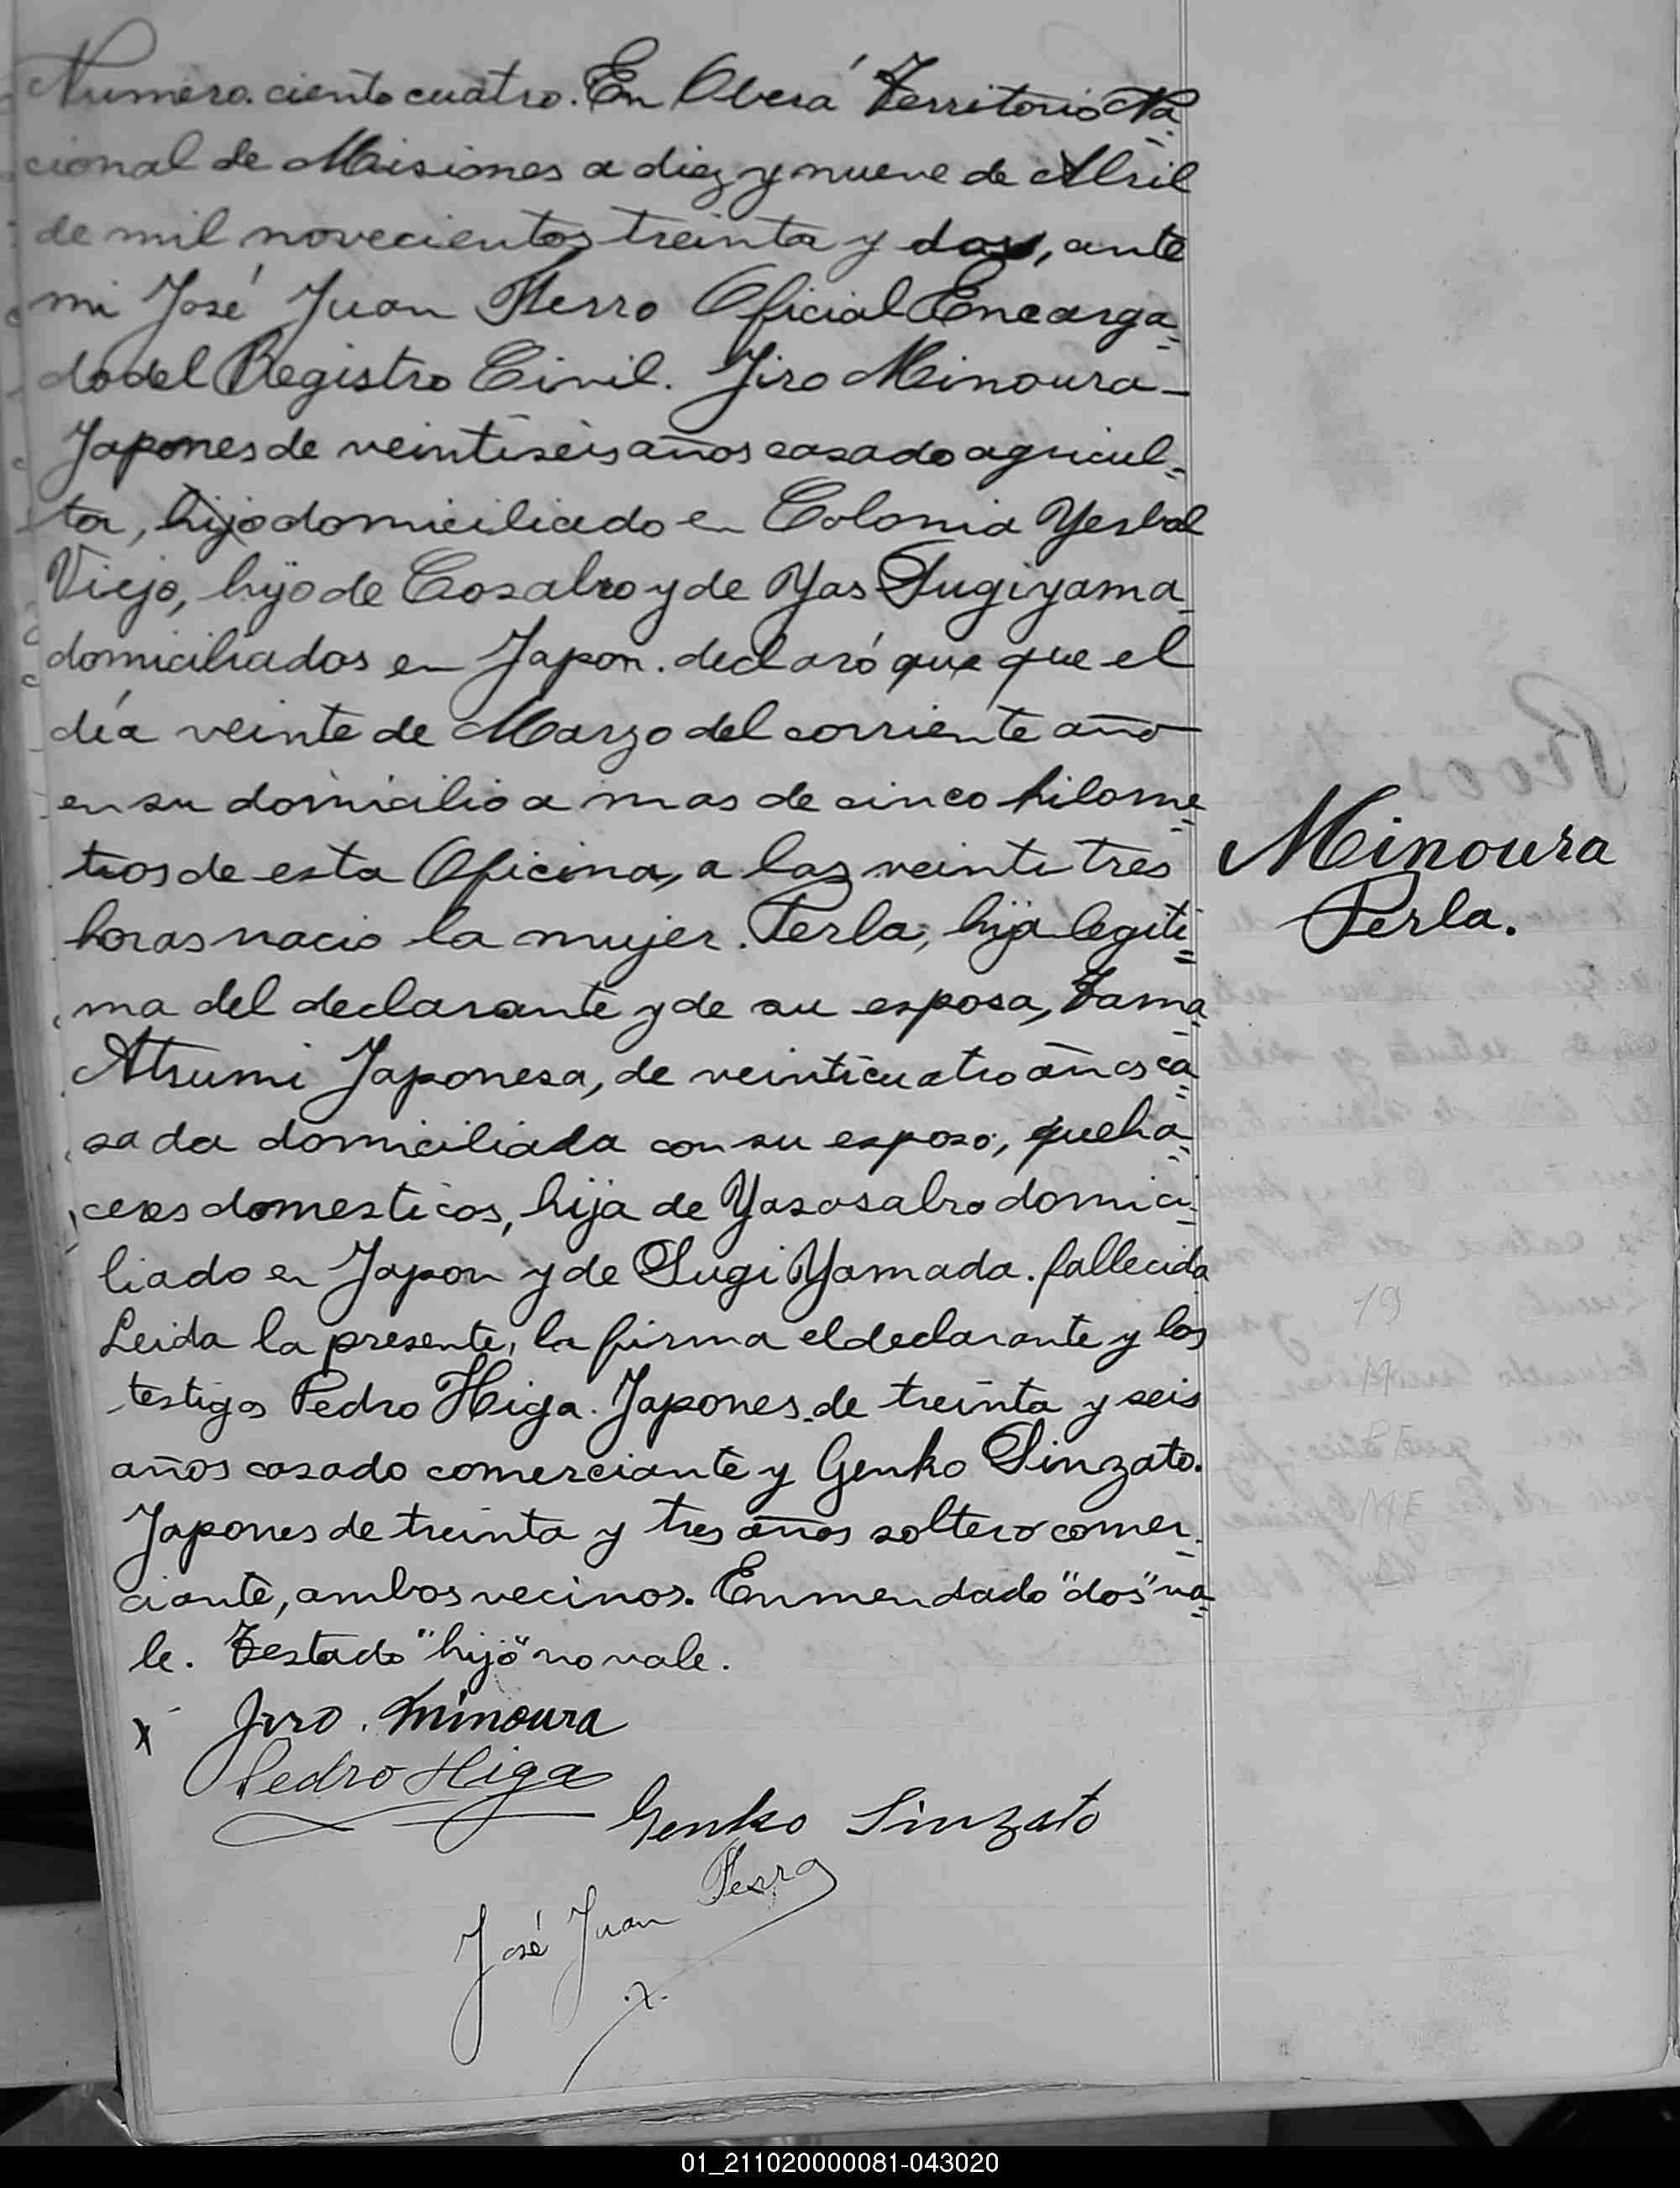 Numero ciento cuatro. En Oberá Territorio Na=
cional de Misiones a diez y nueve de Abril
de mil novecientos treinta y dos, ante
mi José Juan Fierro Oficial Encarga=
do del Registro Civil. Jiro Minoura-
Japones de veintiseis años casado agricul=
tor, hijo domiciliado en Colonia Yerbal
Viejo, hijo de Cosabro y de Yas Sugiyama
domiciliados en Japon. declaró que que el
día veinte de Marzo del corriente año
en su domicilio a mas de cinco kilome=
tros de esta Oficina, a las veinti tres
horas nacio la mujer. Perla, hija legiti=
ma del declarante y de su esposa, Tama
Atsumi Japonesa, de veinticuatro años ca=
sada domiciliada con su esposo, queha=
ceres domesticos, hija de Yasosabro domici=
liado en Japon y de Sugi Yamada. fallecida
Leida la presente, la firma el declarante y los
testigos Pedro Higa. Japones de treinta y seis
años casado comerciante y Genko Sinzato.
Japones de treinta y tres años soltero comer=
ciante, ambos vecinos. Enmendado "dos" va=
le. Testado "hijo" no vale.
x Jiro. Minoura
Pedro Higa
Genko Sinzato
José Juan Fierro
Minoura
Perla.
19
M
ME
01_211020000081-043020